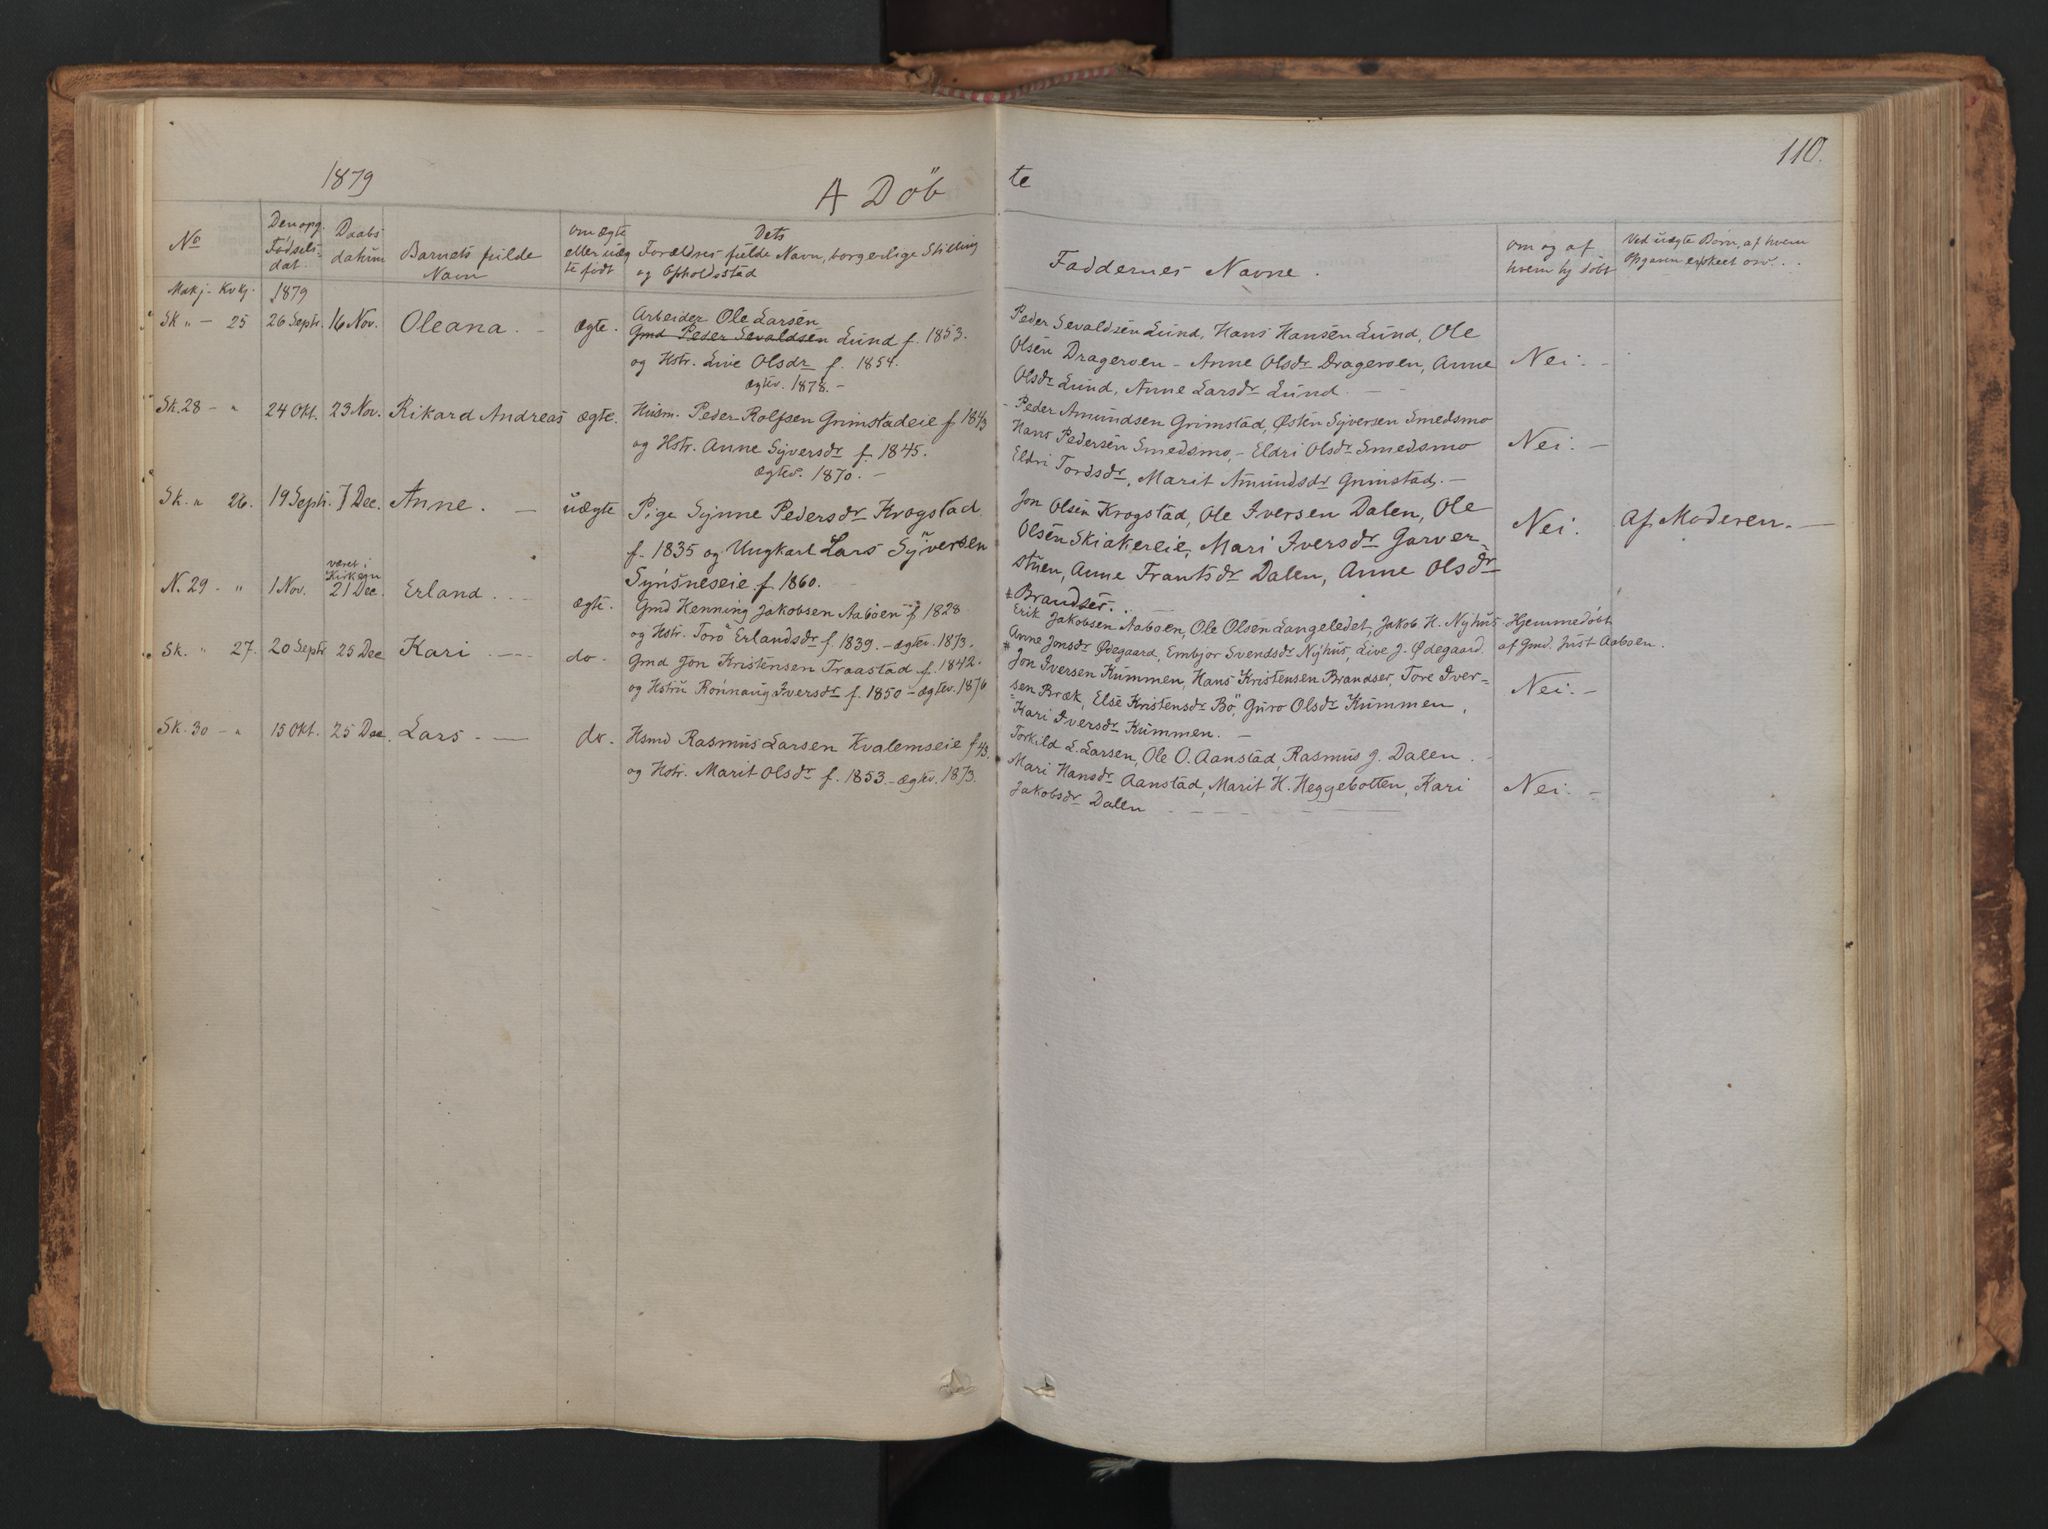 110.
1879
A Döb
te
No
Den opg. Födsels-dat.
Daabs datum
Barnets fulde Navn
om ægte eller uægte födt
Dets Forældres fulde Navn, borgerlige Stilling og Opholdsstad
Faddernes Navne.
om og af hvem hj döbt
Ved uægte Börn, af hvem Opgaven er skeet osv...
Makj - Kvkj. 1879
Sk " - 25 26 Septr. 16 Nov. Oleana. - ægte.
Arbeider Ole Larsen
Gmd Peder Sevaldsen Lund f. 1853.
og Hstr. Live Olsdr f. 1854.
ægtev. 1878. -
Peder Sevaldsen Lund, Hans Hansen Lund, Ole
Olsen Drageroen - Anne Olsdr Drageroen, Anne
Olsdr Lund, Anne Larsdr Lund. -
Nei. -
Sk. 28 - " 24 Okt. 23 Nov. Rikard Andreas ægte.
Husm. Peder Rolfsen Grimstadeie f 1843
og Hstr. Anne Syversdr f. 1845.
ægtev. 1870. -
- Peder Amundsen Grimstad, Østen Syversen Smedsmo
Hans Pedersen Smedsmo, - Eldri Olsdr Smedsmo
Eldri Tordsdr, Marit Amundsdr Grimstad, -
Nei. -
Sk. " 26. 19 Septr. 7 Dec. Anne. - uægte
Pige Synne Pedersdr Krogstad
f. 1835 og Ungkarl Lars Syversen
Synsneseie f. 1860.
Jon Olsen Krogstad, Ole Iversen Dalen, Ole
Olsen Skiakereie, Mari Iversdr Garver-
stuen, Anne Frantsdr Dalen, Anne Olsdr
Brandser. . -
Nei. Af Moderen. -
været i
Kirken
N. 29 - " 1 Nov. 21 Dec. Erland. - ægte.
Gmd Henning Jakobsen Aaboen f 1828
og Hstr. Torö Erlandsdr f. 1839. - ægtev. 1873.
Erik Jakobsen Aaboen, Ole Olsen Langeledet, Jakob H. Nyhus
Anne Jonsdr Ødegaard, Embjor Svendsdr Nyhus, Live J. Ødegaard.
Hjemmedöbt
af Gmd. Just Aaboen.
Sk. " 27. 20 Septr 25 Dec Kari - do.
Gmd Jon Kristensen Traastad f. 1842.
og Hstru Rönnaug Iversdr f. 1850 - ægtev. 1876
Jon Iversen Kummen, Hans Kristensen Brandser, Tore Iver-
sen Bræk, Else Kristensdr Bö, Guro Olsdr Kummen,
Kari Iversdr Kummen. -
Nei. -
Sk. 30 - " 15 Okt. 25 Dec. Lars. - do.
Hsmd Rasmus Larsen Kvalemseie f 43.
og Hstr. Marit Olsdr f. 1853. - ægtev. 1873.
Torkild L. Larsen, Ole O. Aanstad, Rasmus J. Dalen. -
Mari Hansdr Aanstad, Marit H. Heggebotten, Kari
Jakobsdr Dalen
Nei. -